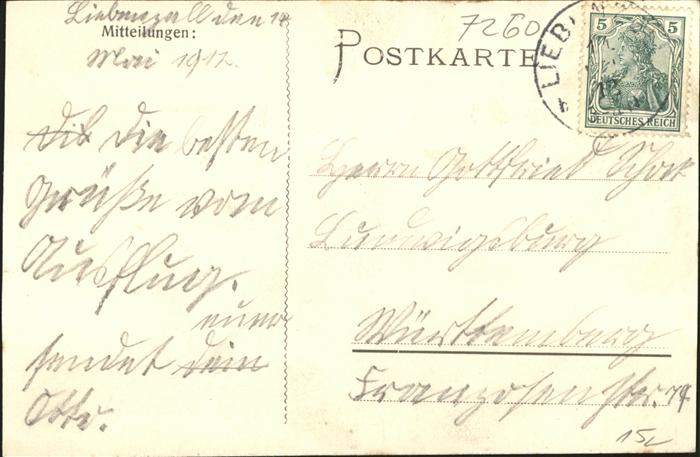 Liebenzell den 14
Mitteilungen:
Mai 1912.
die besten
Grüße vom
Ausflug.
euer
sendet dein
Otto.
7260
POSTKARTE
LIEB
5 5
DEUTSCHES REICH
Herrn Gottfried
Ludwigsburg
Württemberg
Franzosenstr. 74